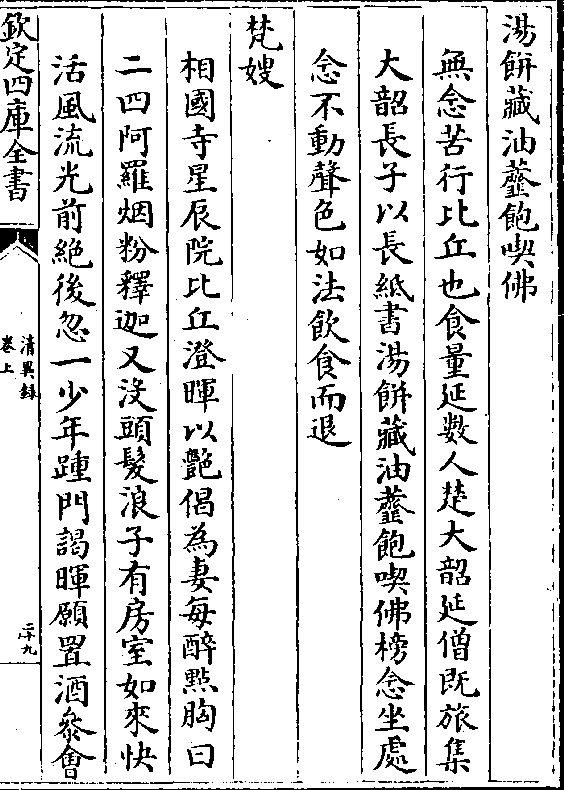 湯餅藏油虀飽喫佛
無念苦行比丘也食量延数人楚大韶延僧既旅集
大韶長子以長紙書湯餅藏油虀飽喫佛榜念坐處
念不動聲色如法飲食而退
梵嫂
相國寺星辰院比丘澄暉以艷倡為妻每醉㸃胸曰
二四阿羅烟粉釋迦又没頭髪浪子有房室如來快
活風流光前絶後忽一少年踵門謁暉願置酒叅㑹
欽定四庫全書
清異録
卷上
二十九